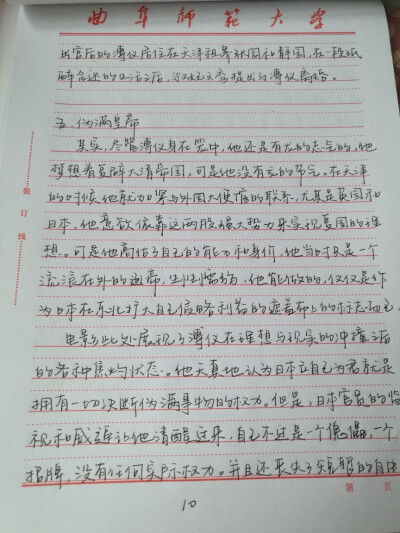 曲阜师范大学
出宫后的溥仪居住在天津租界张园和静园,在一段纸
醉金迷的生活之后,淑妃文秀提出与溥仪离婚。
五、伪满皇帝
其实,尽管溥仪身在笼中,他还是有龙的志气的,他
梦想着复辟大清帝国,可是他没有龙的节气。在天津
的时候他就加深与外国大使馆的联系,尤其是英国和
日本,他意欲依靠这两股强大势力来实现复国的理
想。可是他高估了自己的能力和身价,他当时只是一个
流浪在外的逊帝,生性懦弱,他能做的,仅仅是作
为日本在东北扩大自己侵略利益的遮羞布上的标志而已。
电影此处展现了溥仪在理想与现实的冲撞
的各种焦灼状态。他天真地认为日本立自己为君就是
拥有一切决断伪满事物的权力。但是,日本官员的临
视和威强让他清醒过来,自己不过是一个傀儡,一个
招牌,没有任何实际权力。并且还丧失了宝贵的自由
装订线
第 页
10